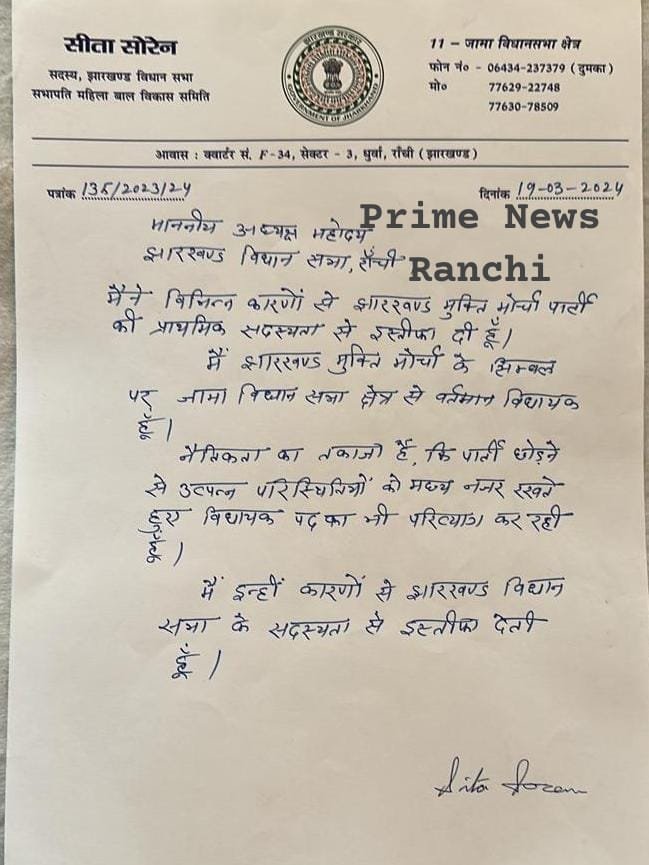 सीता सोरेन
सदस्य, झारखण्ड विधान सभा
सभापति महिला बाल विकास समिति
झारखण्ड सरकार
GOVERNMENT OF JHARKHAND
11 - जामा विधानसभा क्षेत्र
फोन नं० - 06434-237379 ( दुमका )
मो० 77629-22748
77630-78509
आवास : क्वार्टर सं. F-34, सेक्टर - 3, धुर्वा, राँची ( झारखण्ड )
पत्रांक 135/2023/24 दिनांक 19-03-2024
Prime News
Ranchi
माननीय अध्यक्ष महोदय
झारखण्ड विधान सभा, राँची
मैंने विभिन्न कारणों से झारखण्ड मुक्ति मोर्चा पार्टी
की प्राथमिक सदस्यता से इस्तीफा दी हूँ।
मैं झारखण्ड मुक्ति मोर्चा के सिम्बल
पर जामा विधान सभा क्षेत्र से वर्तमान विधायक
हूँ।
नैतिकता का तकाजा है, कि पार्टी छोड़ने
से उत्पन्न परिस्थितिओं को मध्य नजर रखते
हुए विधायक पद का भी परित्याग कर रही
हूँ।
मैं इन्हीं कारणों से झारखण्ड विधान
सभा के सदस्यता से इस्तीफा देती
हूँ।
Sita Soren